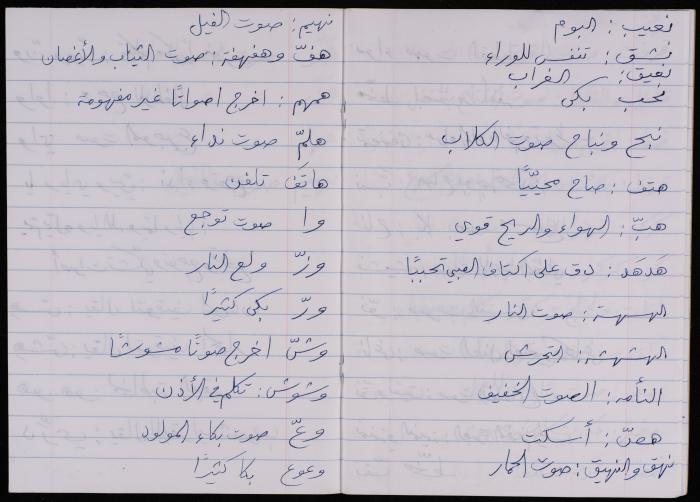 نعيب: البوم
نشق: تنفس للوراء
نعيق: الغراب
نحب بكى
نبح ونباح صوت الكلاب
هتف: صاح محيّيًا
هبّ: الهواء والريح قوي
هَدهَد: دق على اكتاف الصبي تحببًا
الهسهسة: صوت النار
الهشهشة: التحرش
النأمه: الصوت الخفيف
هصّ: أسكت
نهق والنهيق: صوت الحمار
نهيم: صوت الفيل
هفّ وهفهفة: صوت الثياب والأغصان
همهم: اخرج اصواتًا غير مفهومة
هلمّ صوت نداء
هاتَف تلفن
وا صوت توجع
وزّ ولع النار
ورّ بكى كثيرًا
وشّ اخرج صوتًا مشوشًا
وشوش: تكلم في الأذن
وعّ صوت بكاء المولود
وعوع بكا كثيرًا